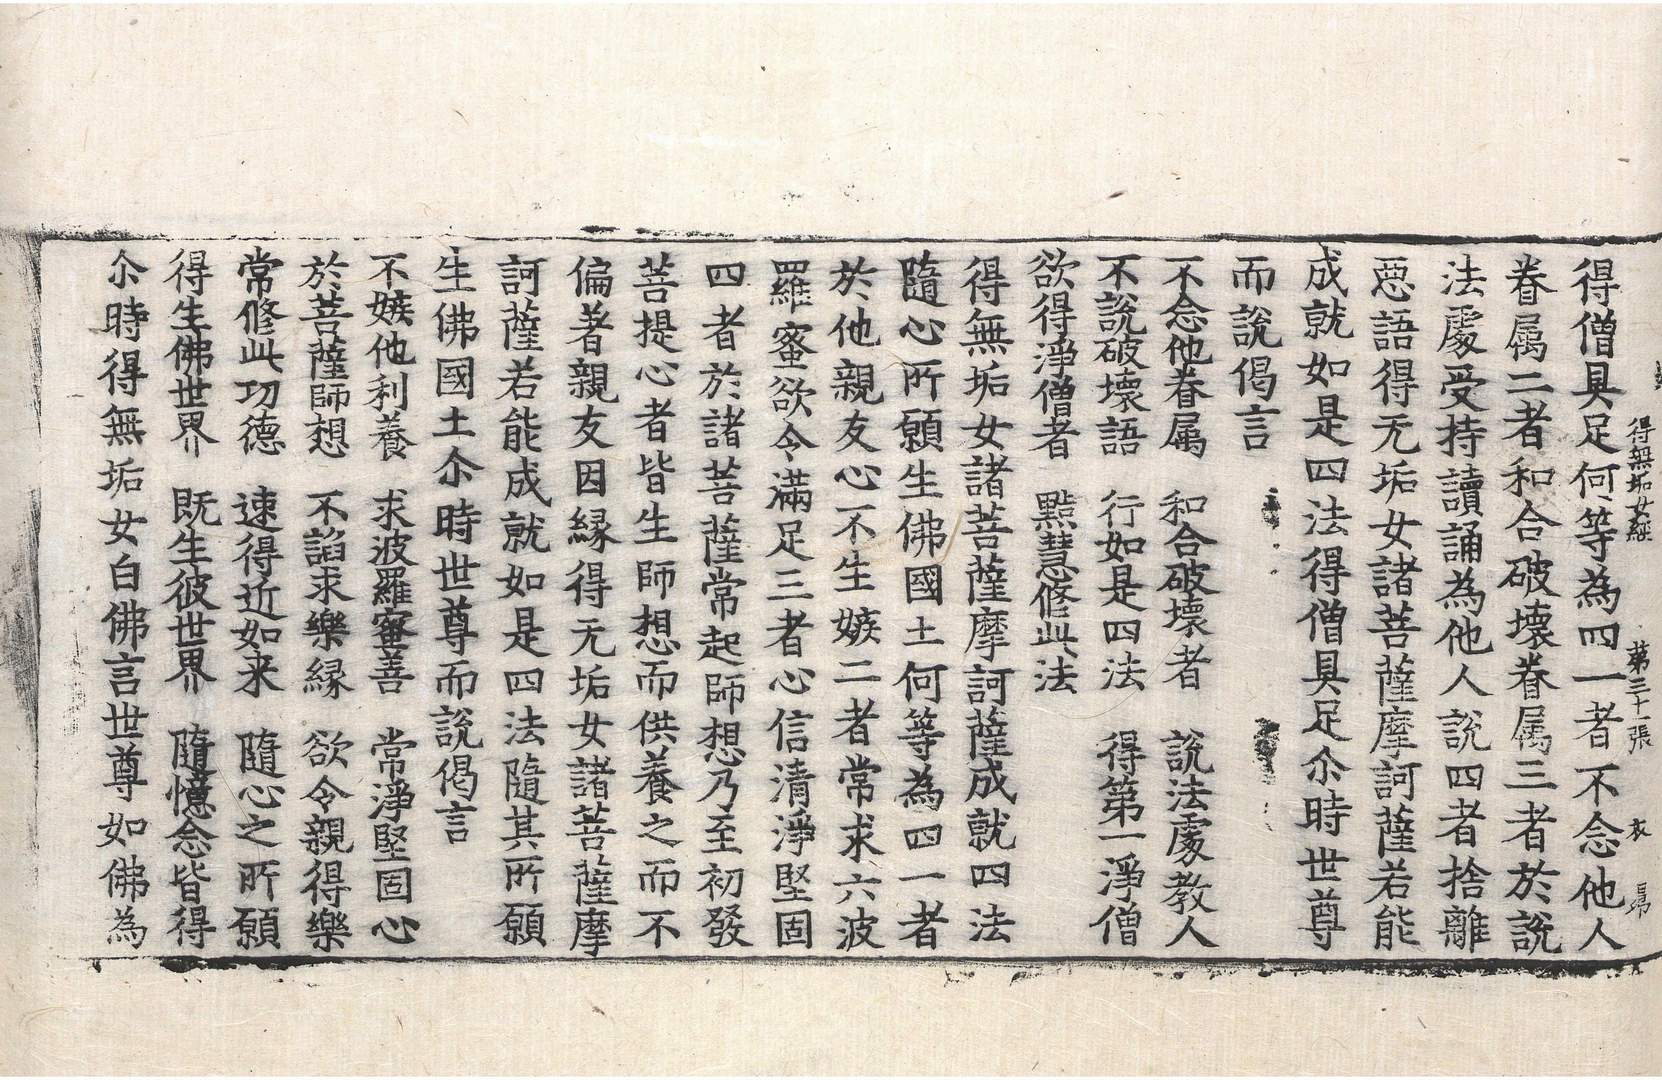 得無垢女經 第三十一張 衣 昴
得僧具足何等為四一者不念他人
眷属二者和合破壞眷属三者於說
法處受持讀誦為他人說四者捨離
惡語得无垢女諸菩薩摩訶薩若能
成就如是四法得僧具足尒時世尊
而說偈言
不念他眷属 和合破壞者 說法處教人
不說破壞語 行如是四法 得第一淨僧
欲得淨僧者 黠慧修此法
得無垢女諸菩薩摩訶薩成就四法
隨心所願生佛國土何等為四一者
於他親友心不生嫉二者常求六波
羅蜜欲令滿足三者心信清淨堅固
四者於諸菩薩常起師想乃至初發
菩提心者皆生師想而供養之而不
偏著親友因縁得无垢女諸菩薩摩
訶薩若能成就如是四法隨其所願
生佛國土尒時世尊而說偈言
不嫉他利養 求波羅蜜善 常淨堅固心
於菩薩師想 不諂求樂縁 欲令親得樂
常修此功德 速得近如来 隨心之所願
得生佛世界 既生彼世界 隨憶念皆得
尒時得無垢女白佛言世尊如佛為